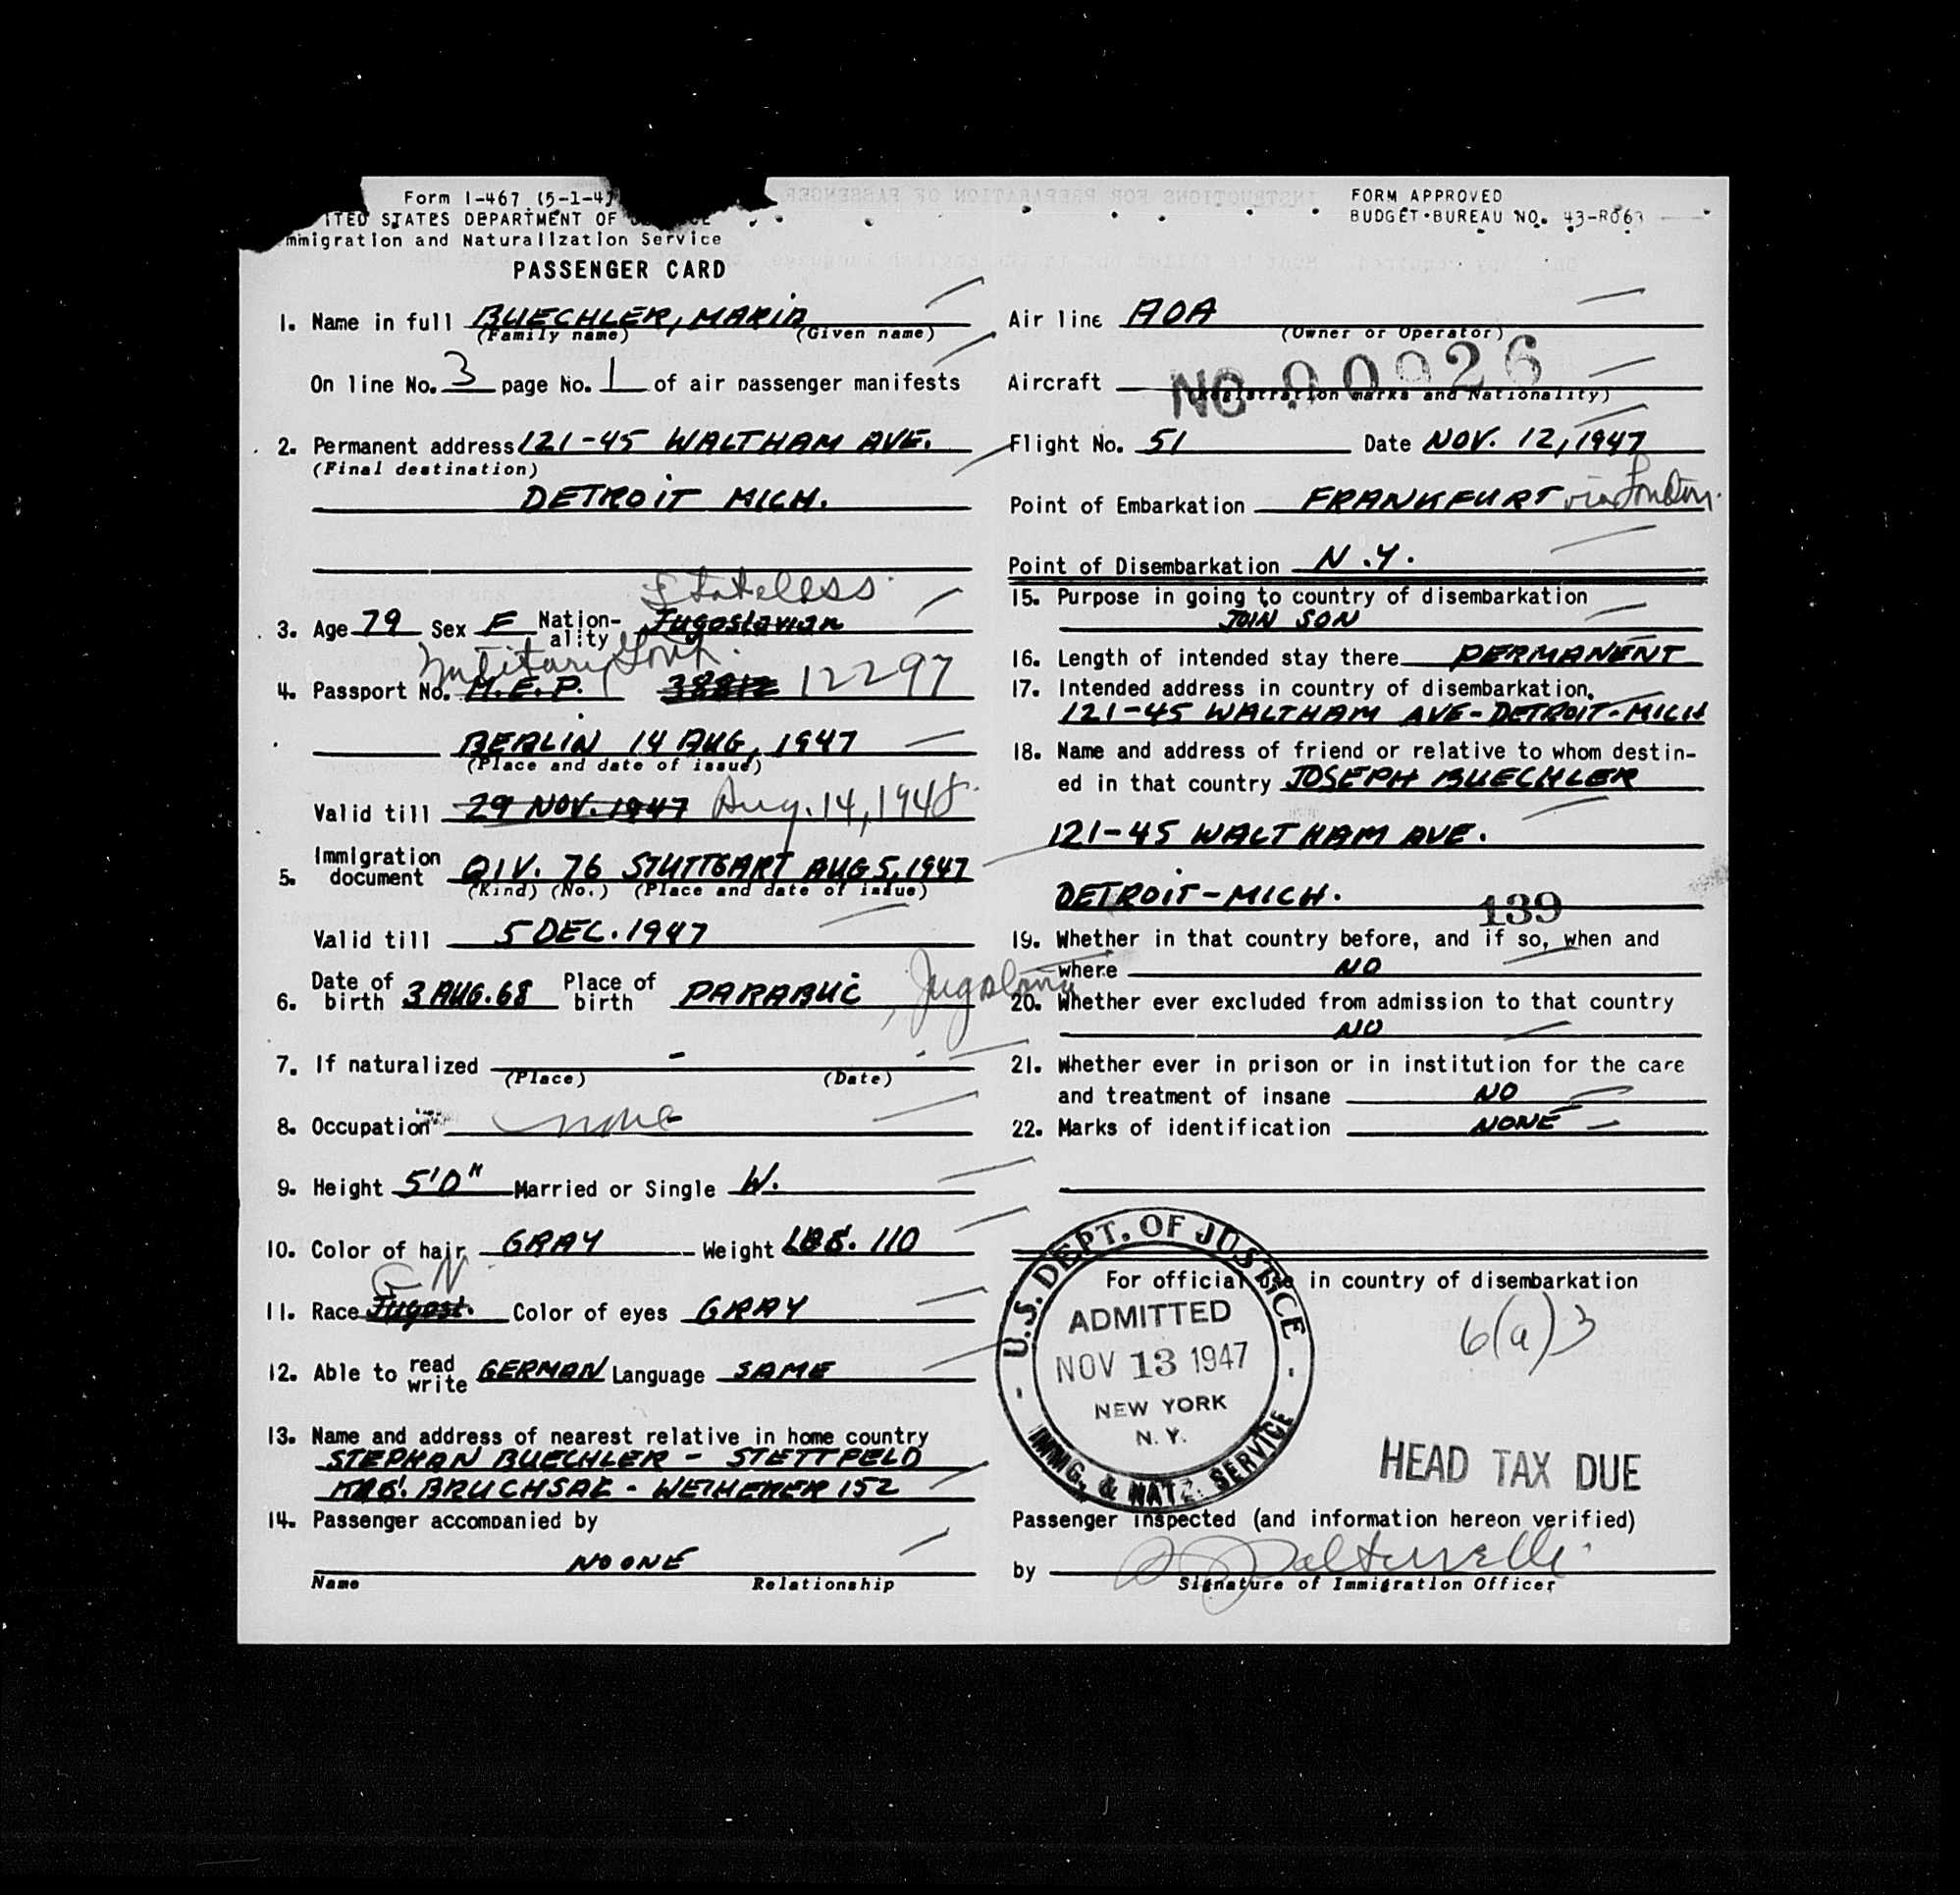 Form I-467 (5-1-47
ITED STATES DEPARTMENT OF
mmigration and Naturalization Service
PASSENGER CARD
1. Name in full BUECHLER, MARIA
(Family name) (Given name)
On line No. 3 page No. 1 of air passenger manifests
2. Permanent address 121-45 WALTHAM AVE.
(Final destination)
DETROIT MICH.
Stateless
3. Age 79 Sex F Nationality Jugoslavian
Military Govt.
4. Passport No. M.E.P. 38812 12297
BERLIN 14 AUG, 1947
(Place and date of issue)
Valid till 29 NOV. 1947 Aug. 14, 1948
5. Immigration document QIV. 76 STUTTGART AUG 5, 1947
(Kind) (No.) (Place and date of issue)
Valid till 5 DEC. 1947
6. Date of birth 3 AUG. 68 Place of birth PARABUC, Jugoslavia
7. If naturalized - -
(Place) (Date)
8. Occupation none
9. Height 5'0" Married or Single W.
10. Color of hair GRAY Weight LBS. 110
GN
11. Race Jugosl. Color of eyes GRAY
12. Able to read write GERMAN Language SAME
13. Name and address of nearest relative in home country
STEPHAN BUECHLER - STETTFELD
BRUCHSAL - 152
14. Passenger accompanied by
NO ONE
Name Relationship
FORM APPROVED
BUDGET BUREAU NO. 43-R063
Air line AOA
(Owner or Operator)
Aircraft NC 90926
(Registration marks and Nationality)
Flight No. 51 Date NOV. 12, 1947
Point of Embarkation FRANKFURT via London
Point of Disembarkation N.Y.
15. Purpose in going to country of disembarkation
JOIN SON
16. Length of intended stay there PERMANENT
17. Intended address in country of disembarkation
121-45 WALTHAM AVE - DETROIT - MICH
18. Name and address of friend or relative to whom destin-
ed in that country JOSEPH BUECHLER
121-45 WALTHAM AVE.
DETROIT - MICH.
139
19. Whether in that country before, and if so, when and
where NO
20. Whether ever excluded from admission to that country
NO
21. Whether ever in prison or in institution for the care
and treatment of insane NO
22. Marks of identification NONE
For official use in country of disembarkation
U.S. DEPT. OF JUSTICE
ADMITTED
NOV 13 1947
NEW YORK
N.Y.
IMMG. & NATZ. SERVICE
6(a)3
HEAD TAX DUE
Passenger inspected (and information hereon verified)
by
Signature of Immigration Officer